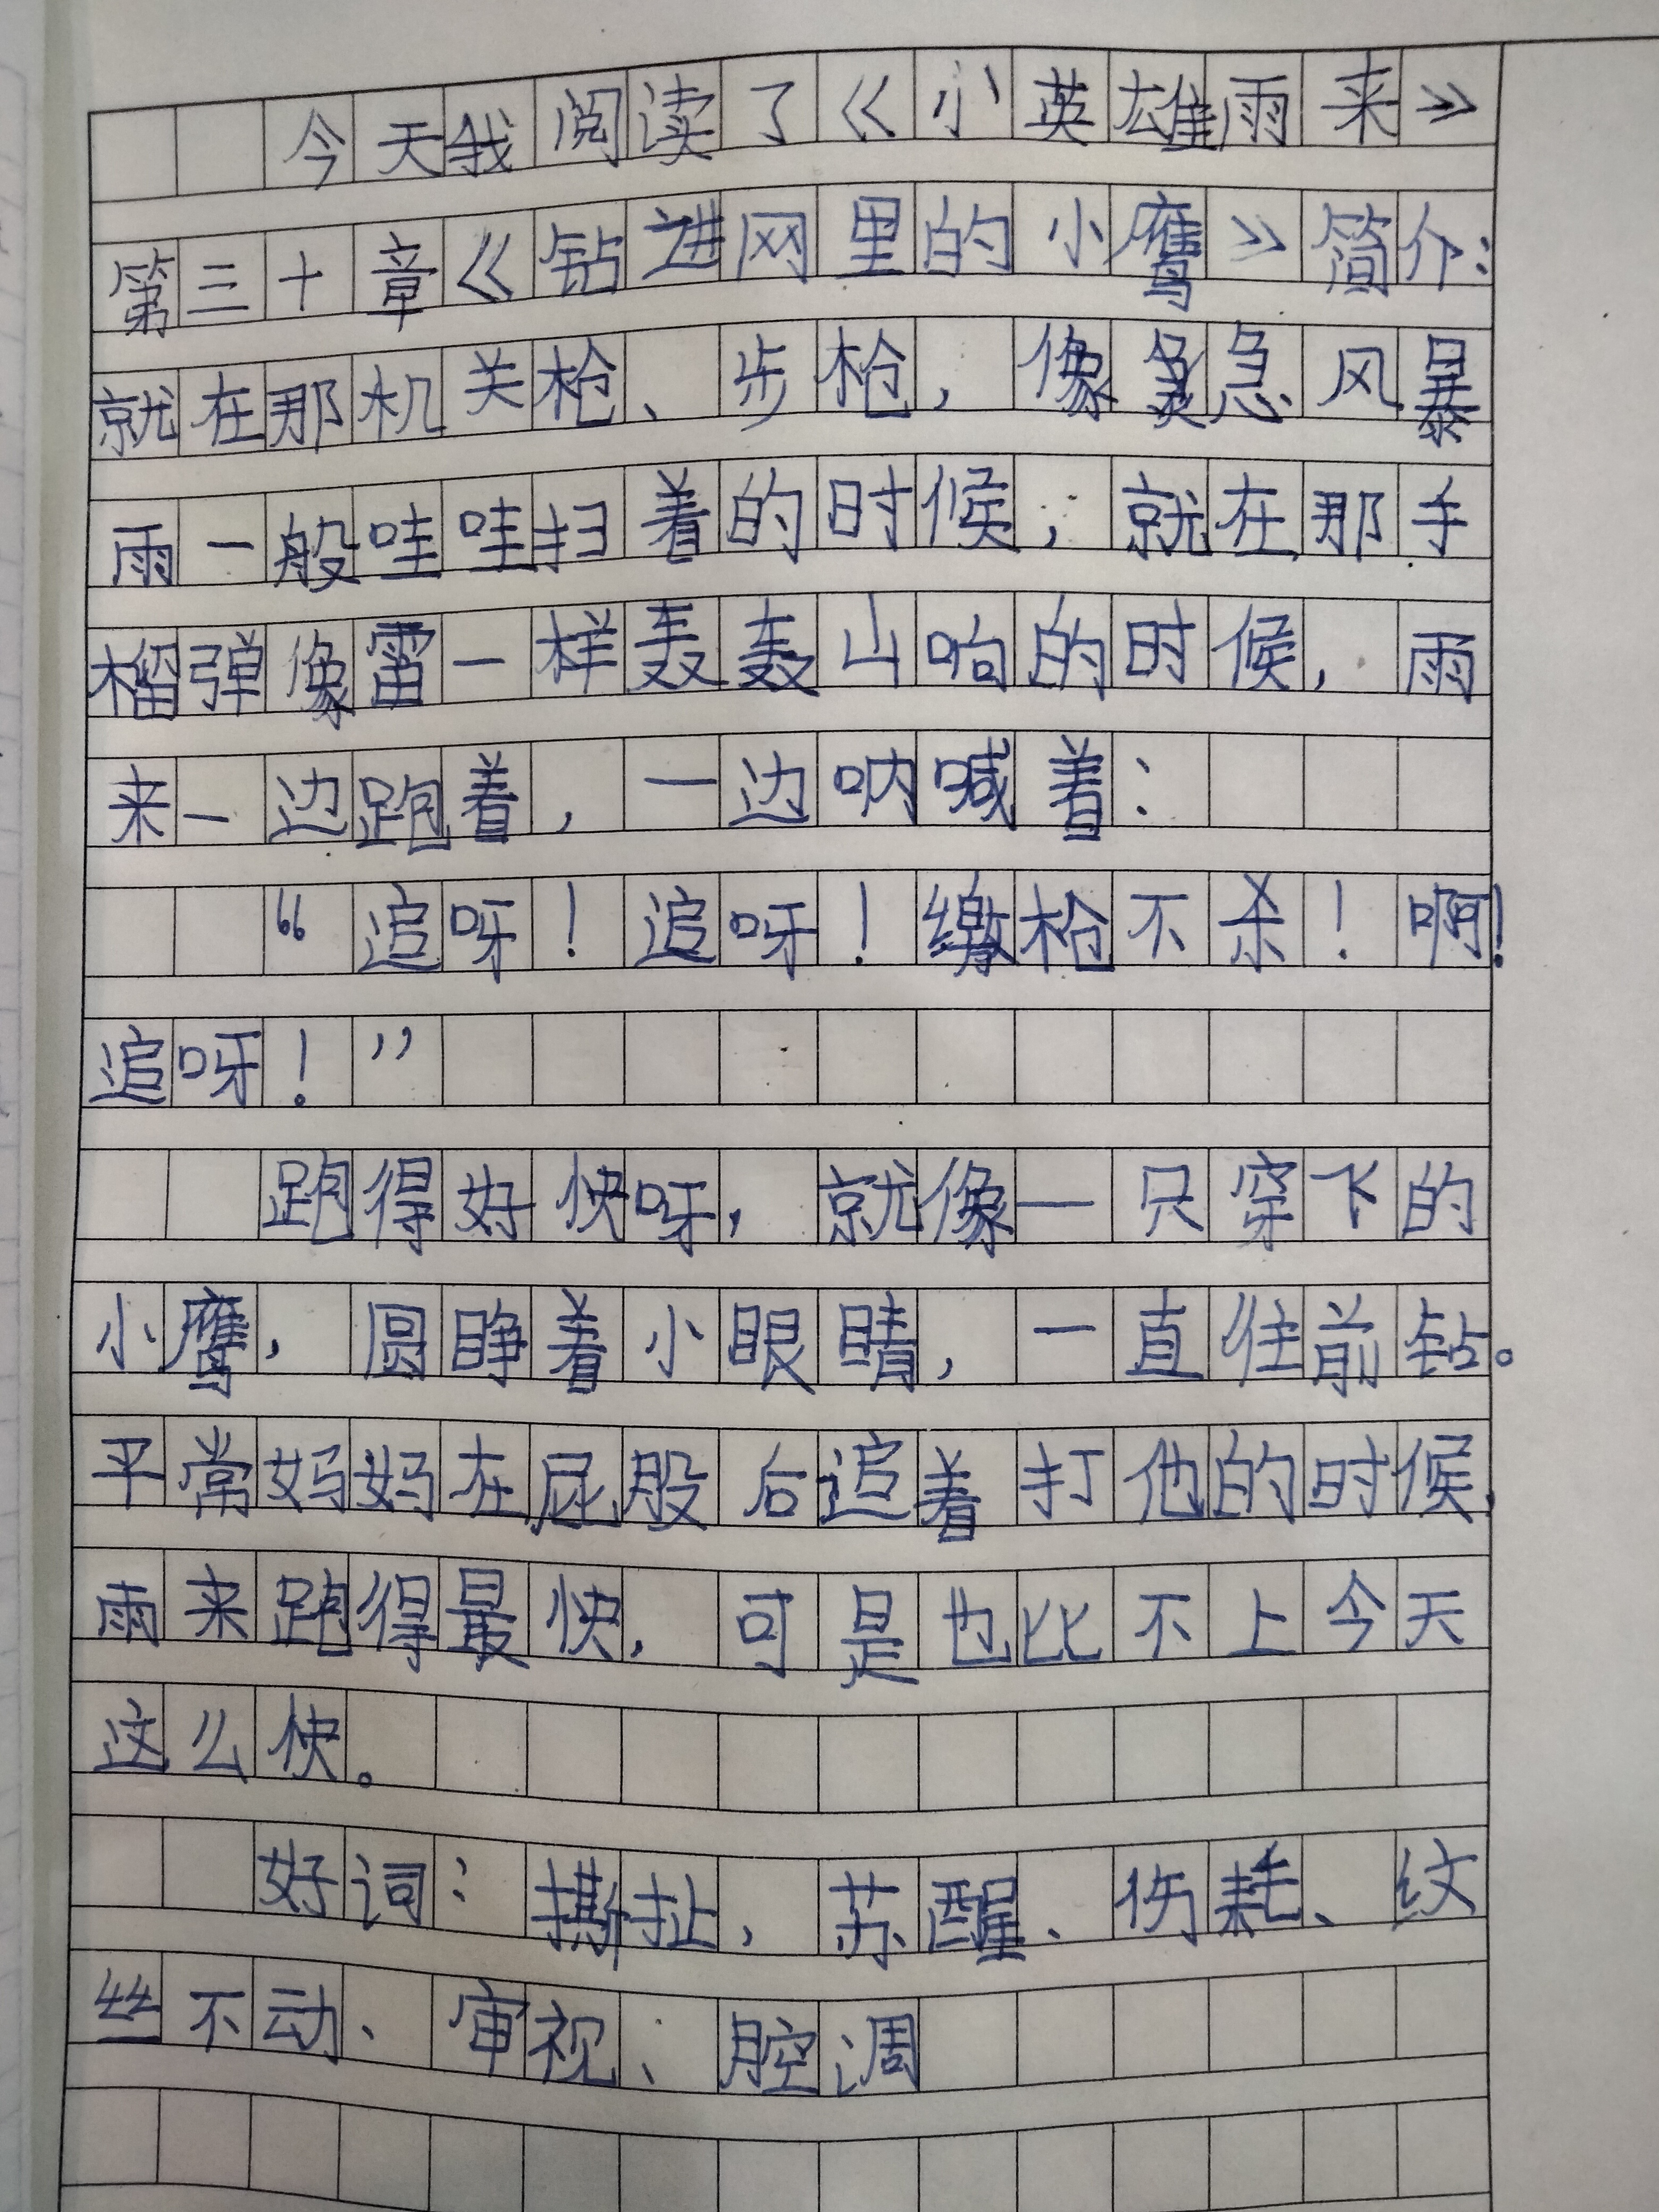 今天我阅读了《小英雄雨来》
第三十章《钻进网里的小鹰》简介:
就在那机关枪、步枪，像急风暴
雨一般哇哇扫着的时候，就在那手
榴弹像雷一样轰轰山响的时候，雨
来一边跑着，一边呐喊着：
“追呀！追呀！缴枪不杀！啊！
追呀！”
跑得好快呀，就像一只穿飞的
小鹰，圆睁着小眼睛，一直往前钻。
平常妈妈在屁股后追着打他的时候，
雨来跑得最快，可是也比不上今天
这么快。
好词：撕扯，苏醒、伤耗、纹
丝不动、审视、腔调